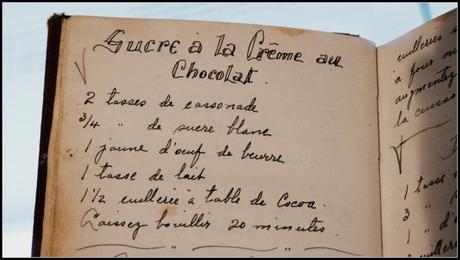 Sucre à la Crême au
Chocolat.
2 tasses de cassonade
3/4 " de sucre blanc
1 jaune d'oeuf de beurre
1 tasse de lait
1 1/2 cuillerée à table de Cocoa.
Laissez bouillir 20 minutes.
cuillerées
à
augmentez
la cuisso
1 tasse
3 "
1 "
cuillerée